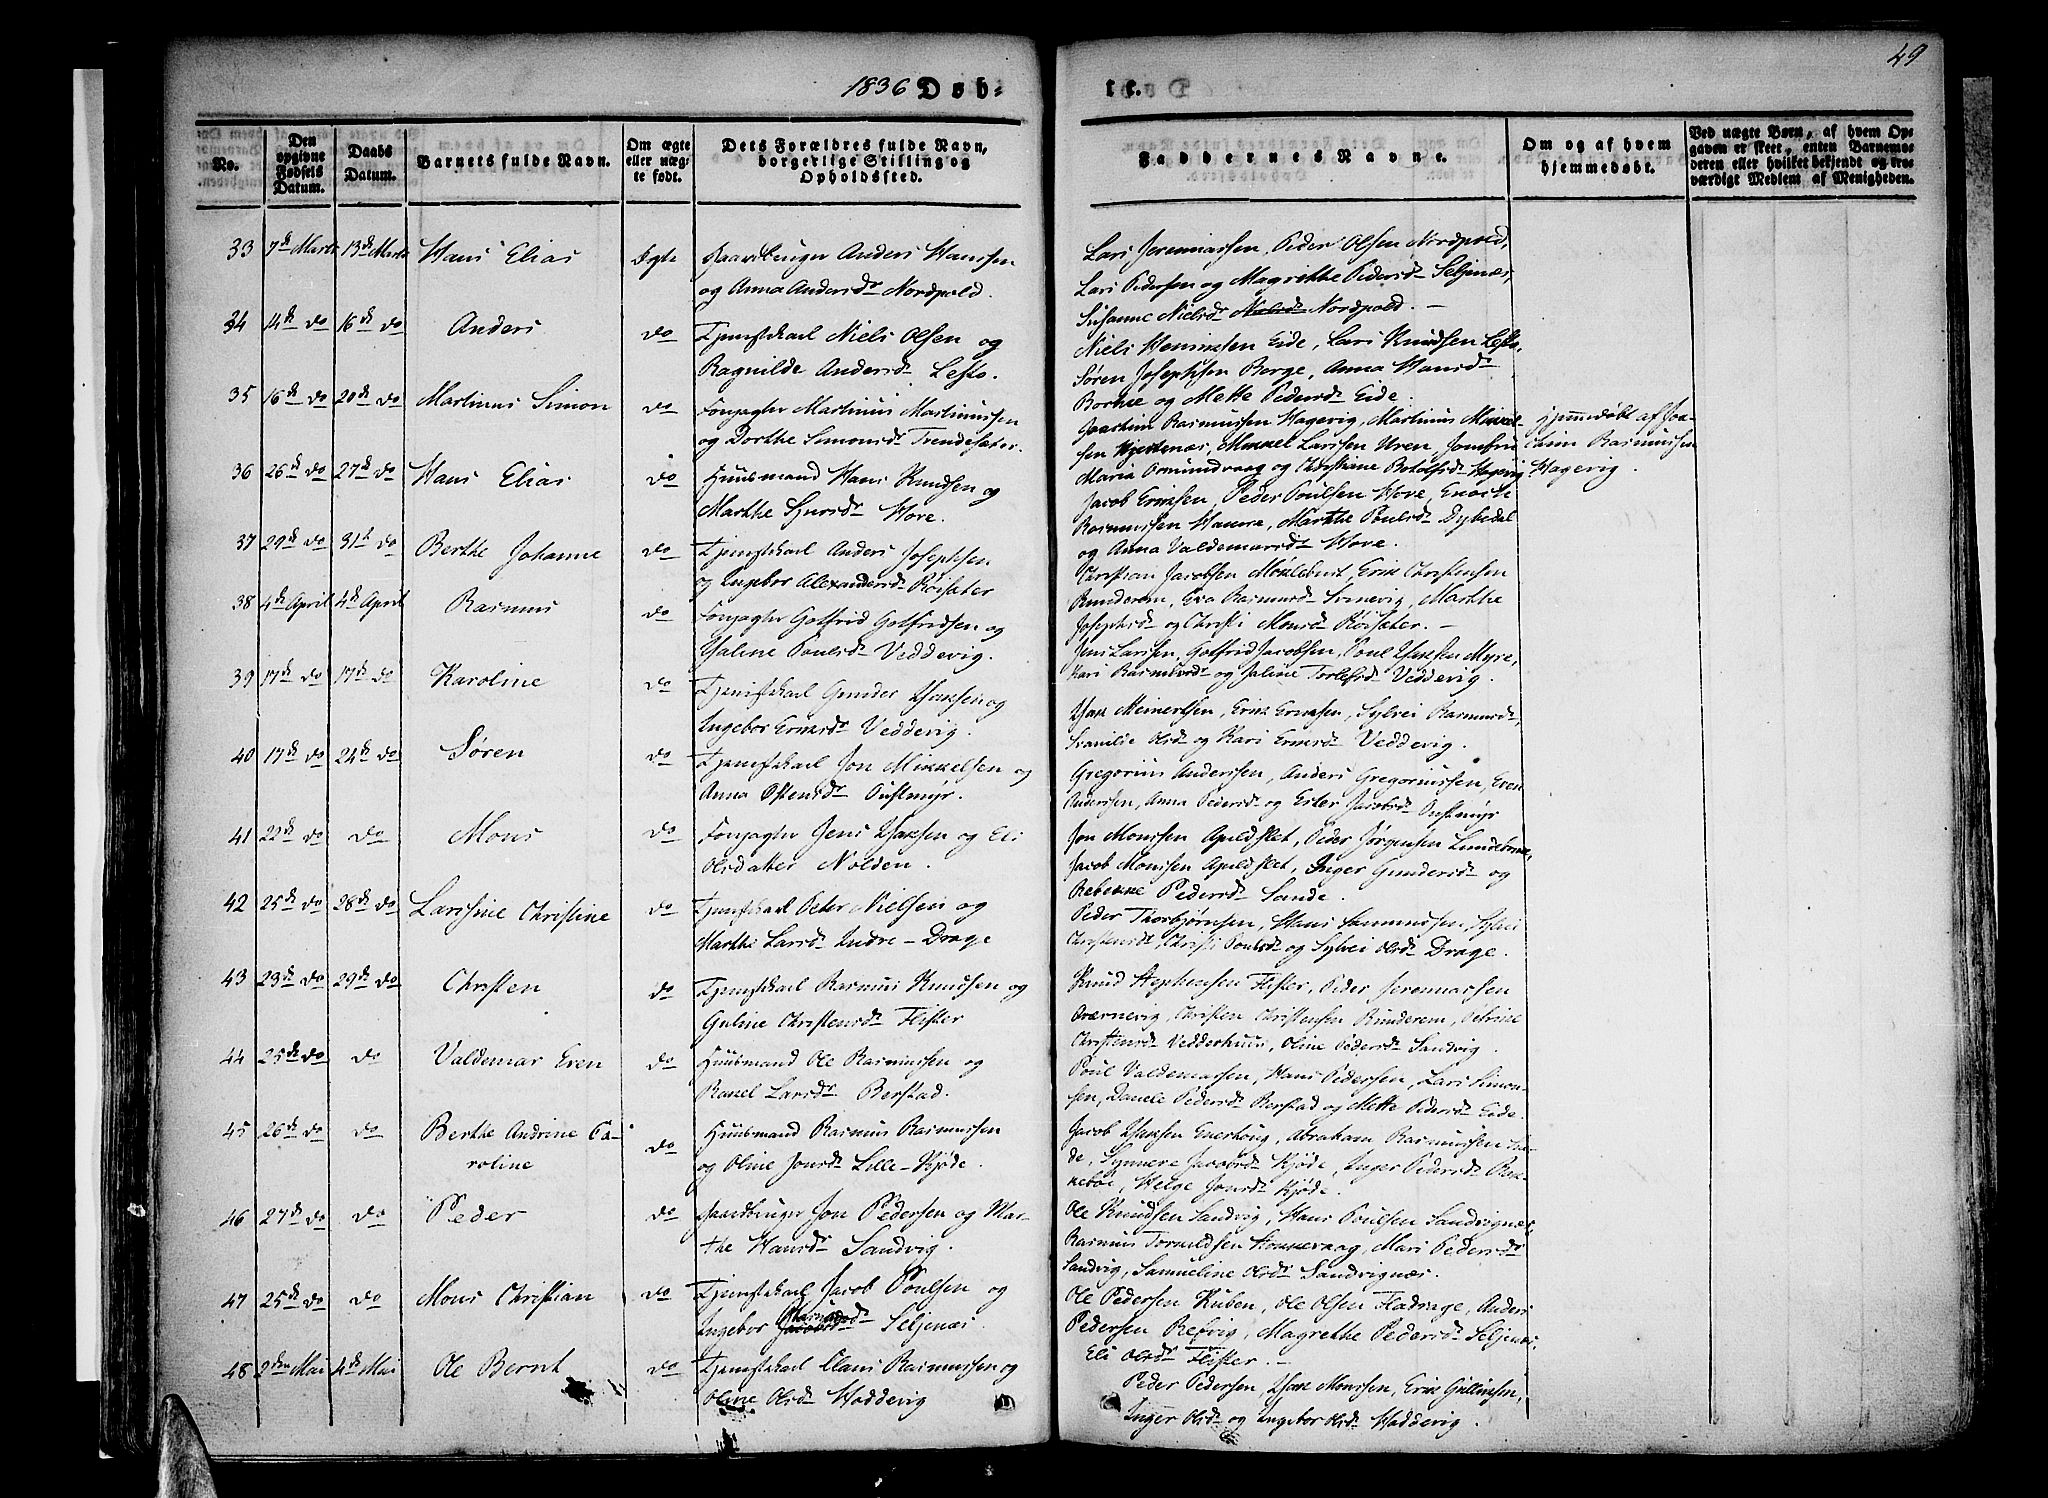 49
1836 Døb-
te.
No.
Den opgivne Fødsels Datum.
Daabs Datum.
Barnets fulde Navn.
Om ægte eller uæg- te født.
Dets Forældres fulde Navn, borgerlige Stilling og Opholdssted.
Faddernes Navne.
Om og af hvem hjemmedøbt.
Ved uægte Børn, af hvem Op- gaven er skeet, enten Barnemo- deren eller hvilket bekjendt og tro- værdigt Medlem af Menigheden.
33 7de Marts 13de Marts Hans Elias Ægte Gaardbruger Anders Hanssen
og Anna Andersdr Nordpold.
Lars Jeremiassen, Peder Olsen Nordpold,
Lars Pedersen og Magrethe Pedersdr Seljenæs,
Susanne Nielsdr Nordpold. —
34 14de do 16de do Anders do Tjenestekarl Niels Olsen og
Ragnilde Andersdr Lesto.
Niels Henriksen Eide, Lars Knudsen Lesto,
Søren Josephsen Berge, Anna Hansdr
og Mette Pedersdr Eide.
35 16de do 20de do Martinus Simon do Martinus Martinussen
og Dorthe Simonsdr Trendesæter.
Joachim Rasmussen Hagevig, Martinus Mikkel-
sen Hjertenæs, Mikkel Larssen Uren, Jomfru
Maria Osmundvaag og Christiane Hagevig
hjemmedøbt af Joa-
chim Rasmussen
Hagevig.
36 26de do 27de do Hans Elias do Huusmand Hans Knudsen og
Marthe Sjursdr Hove.
Jacob Eriksen, Peder Poulsen Hove, Enoch
Rasmussen Hamre, Marthe Poulsdr Dybedal
og Anna Valdemarsdr Hove.
37 29de do 31te do Berthe Johanne do Tjenestekarl Anders Josephsen
og Ingebor Alexandersdr Røisæter
Christian Jacobsen Moldebust, Erik Christensen
Runderem, Eva Rasmusdr Svinevig, Marthe
Josephsdr og Christi Monsdr Røisæter. —
38 4de April 4de April Rasmus do Gotfrid Gotfridsen og
Jaline Poulsdr Veddevig.
Jens Larsen, Gotfrid Jacobsen, Poul Isaksen Myre,
Kari Rasmusdr og Jaline Torlefsdr Veddevig.
39 17de do 17de do Karoline do Tjenestekarl Gunder Isaksen og
Ingebor Eriksdr Veddevig.
Isak Meinertsen, Erik Eriksen, Sylvei Rasmusdr,
Olsdr og Kari Eriksdr Veddevig.
40 17de do 24de do Søren do Tjenestekarl Jon Mikkelsen og
Anna Ostensdr Oustemyr.
Gregorius Anderssen, Anders Gregoriussen, Even
Anderssen, Anna Pedersdr og Ester Jacobsdr Oustmyr
41 22de do do Mons do Jens Isaksen og Eli
Olsdatter Nolden.
Jon Monssen Apuldset, Peder Jørgensen
Jacob Monssen Apuldset, Inger Gundersdr og
Rebekke Pedersdr Sande.
42 25de do 28de do Larssine Christine do Tjenestekarl Peter Nielsen og
Marthe Larsdr Indre-Drage
Peder Thorbjørnsen, Hans Sammundsen, Sylvei
Christensdr, Christi Poulsdr og Sylvei Olsdr Drage.
43 23de do 29de do Christen do Tjenestekarl Rasmus Knudsen og
Guline Christensdr Flister
Knud Stephensen Flister, Peder Jeremiassen
Overnevig, Christen Christensen Runderem, Petrine
Christensdr Vedderhuus, Oline Pedersdr Sandvig.
44 25de do do Valdemar Even do Huusmand Ole Rasmussen og
Rakel Larsdr Berstad.
Poul Valdemarsen, Hans Pederssen, Lars Simon-
sen, Danele Pedersdr Berstad og Mette Pedersdr Eide.
45 26de do do Berthe Andrine Ca-
roline
do Huusmand Rasmus Rasmussen
og Oline Jonsdr Lille-Kjøde.
Jacob Isaksen Enerhoug, Abraham Rasmussen
Synneve Jacobsdr Kjøde, Inger Pedersdr
Helge Jonsdr Kjøde.
46 27de do do Peder do Gaardbruger Jon Pedersen og Mar-
the Hansdr Sandvig.
Ole Knudsen Sandvig, Hans Poulsen Sandvignæs,
Rasmus Torkildsen Mari Pedersdr
Sandvig, Samueline Olsdr Sandvignæs.
47 25de do do Mons Christian do Tjenestekarl Jacob Poulsen og
Ingebor Seljenæs.
Ole Pedersen Kuben, Ole Olsen Fladrage, Anders
Pedersen Refvig, Magrethe Pedersdr Seljenæs,
Eli Olsdr Flister. —
48 2den Mai 4de Mai Ole Bernt do Tjenestekarl Claus Rasmussen og
Oline Olsdr Haddevig
Peder Pedersen, Isak Monssen, Erik Gulliksen,
Inger Olsdr og Ingebor Olsdr Haddevig.